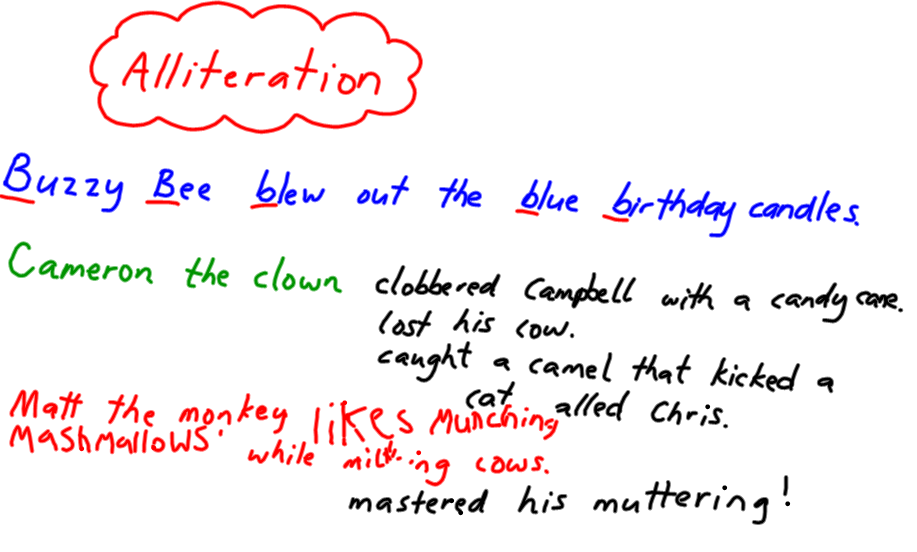 Alliteration
Buzzy Bee blew out the blue birthday candles.
Cameron the clown clobbered Campbell with a candy cane.
lost his cow.
caught a camel that kicked a
cat alled Chris.
Matt the monkey likes Munching
MASHMALLOWS while milking cows.
mastered his muttering!